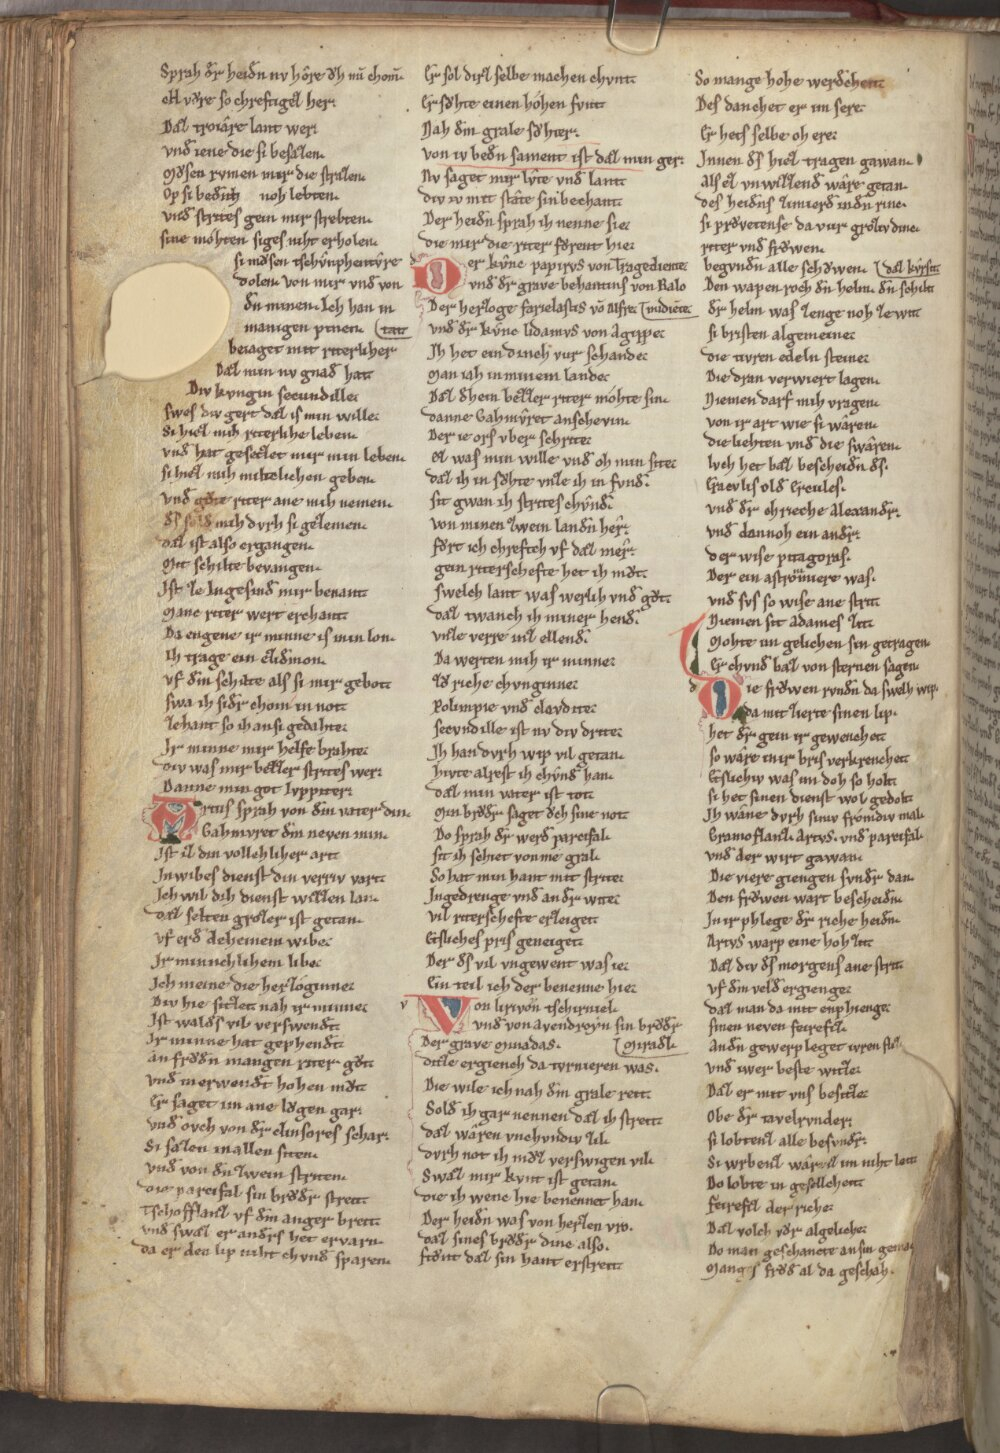 Sprah dˢr heidn nv hôre dh nū chom̄.
eH wˢre so chreftigeʒ her.
Daʒ troiâre lant wer.
vnd iene die si besaʒen.
mˢsen rvmen mir die straʒen.
Op si bedith noh lebten.
vnd strites gein mir strebten.
sine môhten siges niht erholen.
si mˢsen tschvnphentvre
dolen. von mir vnd von
dn minen. Ich han in
manigen pinen. tat
beiaget mit riterlicher
Daʒ min nv gnad hat
Div kvngin secundille.
swes div gert daʒ is min wille.
Si hieʒ mih riterlihe leben.
vnd hat geseʒʒet mir min leben.
si hieʒ mih miltelichen geben.
vnd gˢte riter ane mih nemen.
dˢs sold mih dvrh si geʒemen.
daʒ ist also ergangen.
Mit schilte bevangen.
Ist ʒe Ingesind mir benant
Manc riter wert erchant
Da engene ir minne is min lon.
Ih trage ein eʒidmon.
vf dm schilte als si mir gebot
swa ih sidˢr chom in not
ʒehant so ih an si gedahte.
Ir minne mir helfe brahte.
div was mir beʒʒer strites wer.
Danne min got Ivppiter.
Artus sprah von dm vater din
Gahmvret dm neven min.
Ist iʒ din vollechliher art
In wibes dienst din verriv vart.
Ich wil dih dienst wiʒʒen lan.
daʒ selten groʒer ist getan.
vf erd deheinem wibe.
Ir minnechlihem libe.
Ich meine die herʒoginne.
Div hie siʒʒet nah ir minne
Ist waldˢs vil verswendt.
Ir minne hat gephendt.
an frˢdn mangen riter gˢt.
vnd in erwendt hohen mˢt.
Er saget im ane lˢgen gar.
vnd ovch von dˢr clinsores schar.
Si saʒen in allen siten.
vnd von dn ʒwein striten.
div parcifal sin brˢdˢr streit.
Tschofflanʒ vf dm anger breit
vnd swaʒ er andˢrs het ervarn.
da er den lip niht chvnd sparen.
Er sol dirʒ selbe machen chvnt.
Er sˢhte einen hohen fvnt
Nah dm grale sˢhter.
von iv bedn sament ist daʒ min ger.
Nv saget mir lvte vnd lant
div iv mit strite sin bechant.
Der heidn sprah ih nenne sie.
die mir die riter fˢrent hie.
Der kvnc papirvs von Tragediente
vnd dˢr grave behantins von Kalo
Der herʒoge farielastis vō Affric. mdiente
vnd dˢr kvnc lidamvs von Agrippe
Ih het ein dinch vur schande
Man iah in minem lande.
Daʒ dhein beʒʒer riter mohte sin.
danne Gahmvret anschevin.
Der ie ors vber schrite.
eʒ was min wille vnd oh min site
daʒ ih in sˢhte vnʒe ih in fvnd.
sit gwan ih strites chvnd.
von minen ʒwein landn her.
fˢrt ich chreftich vf daʒ mer.
gein riterschefte het ih mˢt.
swelch lant was werlih vnd gˢt.
daʒ twanch ih miner hend.
vnʒe verre inʒ ellend.
Da werten mih ir minne
ʒˢ riche chvnginne
Polimpie vnd clavdite.
secvndille ist nv div drite
Ih han dvrh wip vil getan.
hivte alrest ih chvnd han.
daʒ min vater ist tot.
Min brˢdˢr saget ˢch sine not
Do sprah dˢr werd parcifal.
sit ih schiet vonme gral.
So hat min hant mit strite.
In gedrenge vnd an dˢr wite.
vil riterschefte erʒeiget
Etsliches pris geneiget.
Der dˢs vil vngewent was ie.
Ein teil ich der benenne hie.
Von lirivon tschirniel.
vnd von avendroyn sin brˢdˢr
Der grave miradas. miradʒ.
ditʒe ergiench da tvrnieren was.
Die wile ich nah dm grale reit.
Sold ih gar nennen daʒ ih streit
daʒ wâren vnchvndiv ʒil.
dvrh not ih mˢʒ verswigen vil.
Swaʒ mir kvnt ist getan.
die ih wene hie benennet han.
Der heidn was von herʒen vro.
daʒ sines brˢdˢr dinc also.
stˢnt daʒ sin hant erstreit.
So mange hohe werdcheit.
Des danchet er im sere.
Er hets selbe oh ere.
Innen dˢs hieʒ tragen gawan.
Als eʒ vnwiʒʒend wâre getan.
des heidns ʒimierd indn rinc.
si prˢvetense da vur groʒiv dinc.
riter vnd frˢwen.
begvndn alle schˢwen. daʒ kvrsit
Den wapen roch dn helm. dn schilt
dˢr helm was ʒenge noh ʒe wit
si bristen algemeine
die tivren edeln steine
Die dran verwiert lagen.
Niemen darf mih vragen.
von ir art wie si wâren.
die liehten vnd die swâren.
Ivch het baʒ bescheidn dˢs.
Eraclis old Ercules.
vnd dˢr chrieche Alexandˢr.
vnd dannoh ein andˢr.
der wise pitagoras.
Der ein astronimiere was.
vnd svs so wise ane strit
Niemen sit adames ʒit
Mohte im gelichen sin getragen
Er chvnd baʒ von sternen sagen
Die frˢwen rvndn da swelh wip.
da mit ʒierte sinen lip.
het dˢr gein ir gewenchet
so wâre mir pris verkrenchet
Etslichiv was im doh so holt
si het sinen dienst wol gedolt.
Ih wâne dvrh siniv fromdiv mal.
Gramoflanʒ. Artvs. vnd parcifal
vnd der wirt gawan.
Die viere giengen svndˢr dan
Den frˢwen wart bescheidn.
In ir phlege dˢr riche heidn.
Artvs warp eine hohʒit
Daʒ div dˢs morgens ane strit
vf dm velde ergienge.
daʒ man da mit enphienge
sinen neven feirefiʒ.
Andn gewerp leget iwren fliʒ
vnd iwer beste witʒe.
Daʒ er mit vns besitʒe.
Obe dˢr tavelrvnder.
si lobtenʒ alle besvndˢr.
Si wrbenʒ wâr iʒ im niht leit
Do lobte in geselleheit
Feirefiʒ der riche.
Daʒ volch vˢr algeliche.
Do man geschancte an sin gema
Manges frˢd al da geschah.